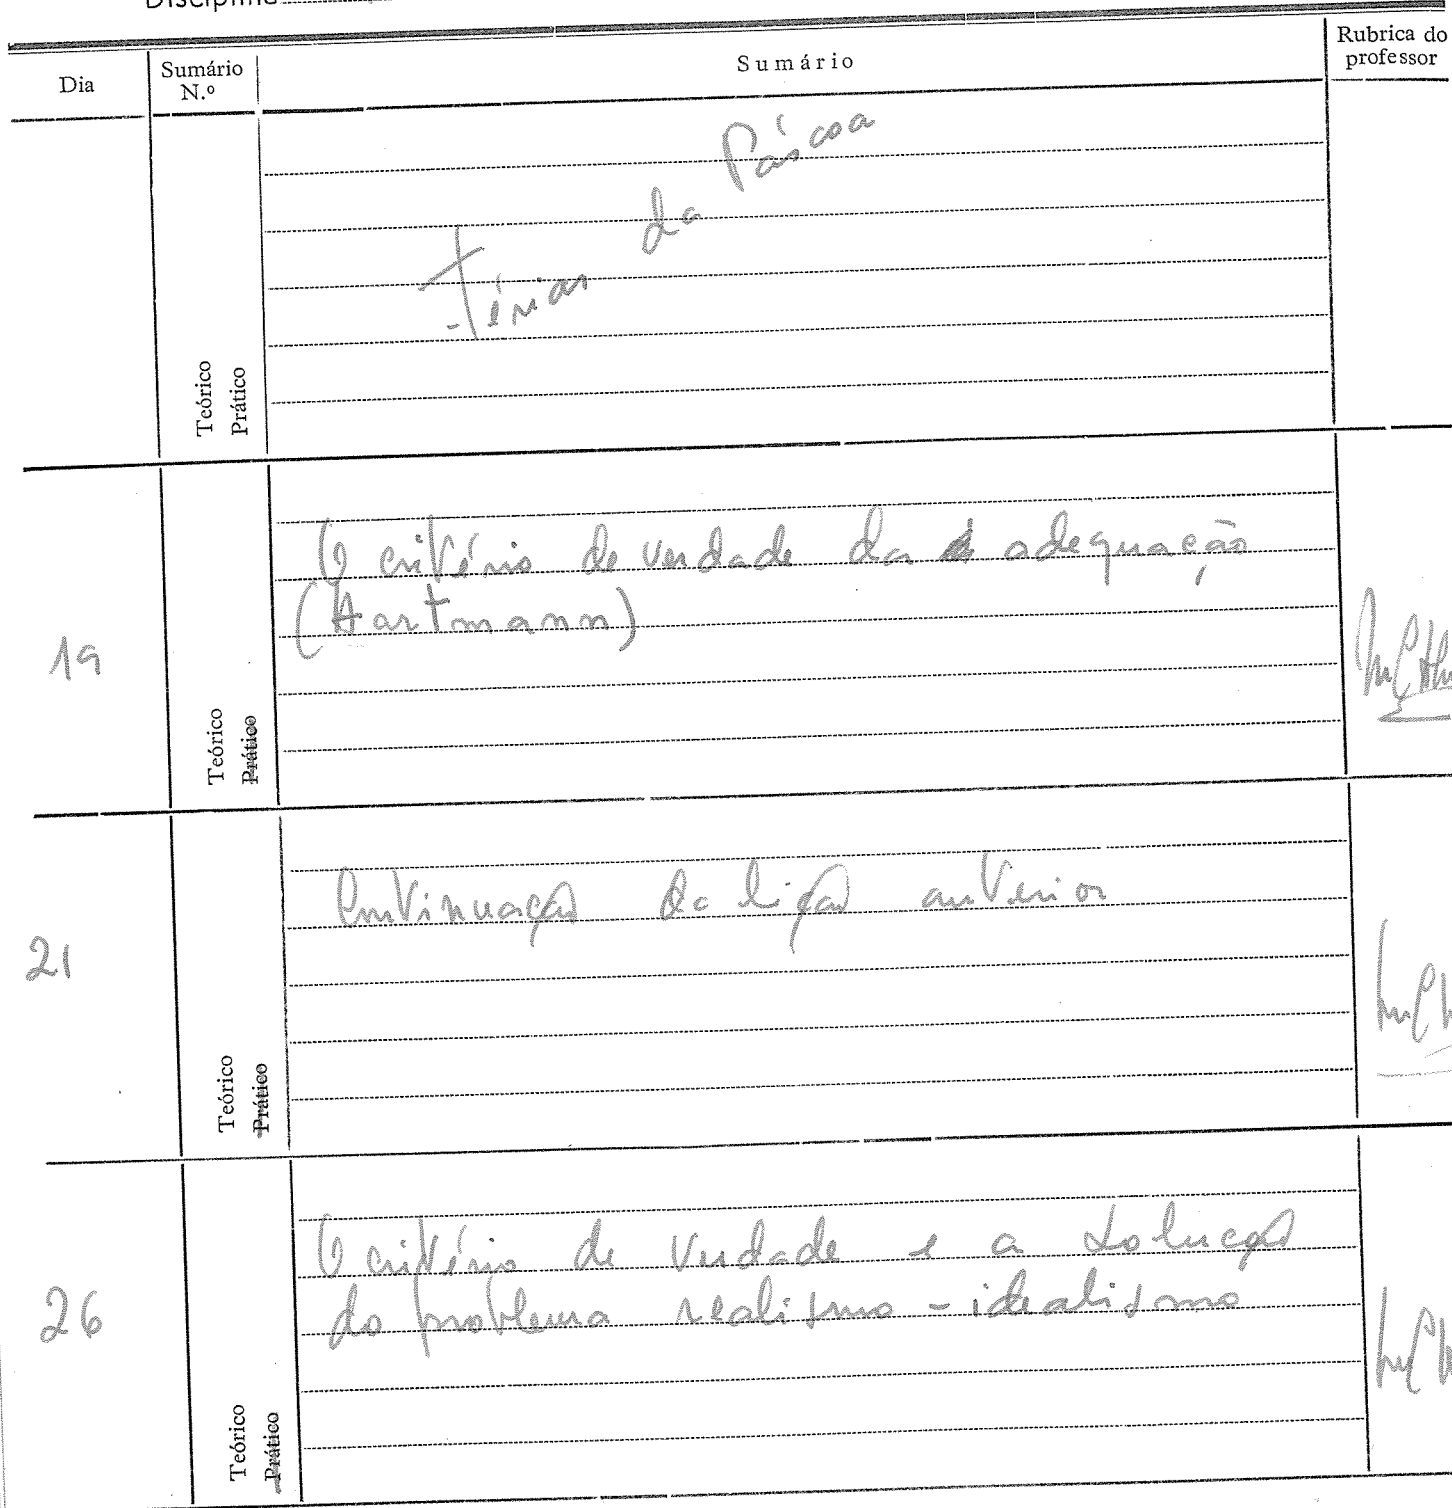 Disciplina
Dia
Sumário N.º
Sumário
Rubrica do professor
Férias da Páscoa
Teórico
Prático
19
O critério de verdade da adequação
(Hartmann)
Teórico
Prático
21
Continuação da lição anterior
Teórico
Prático
26
O critério de verdade e a solução
do problema realismo - idealismo
Teórico
Prático